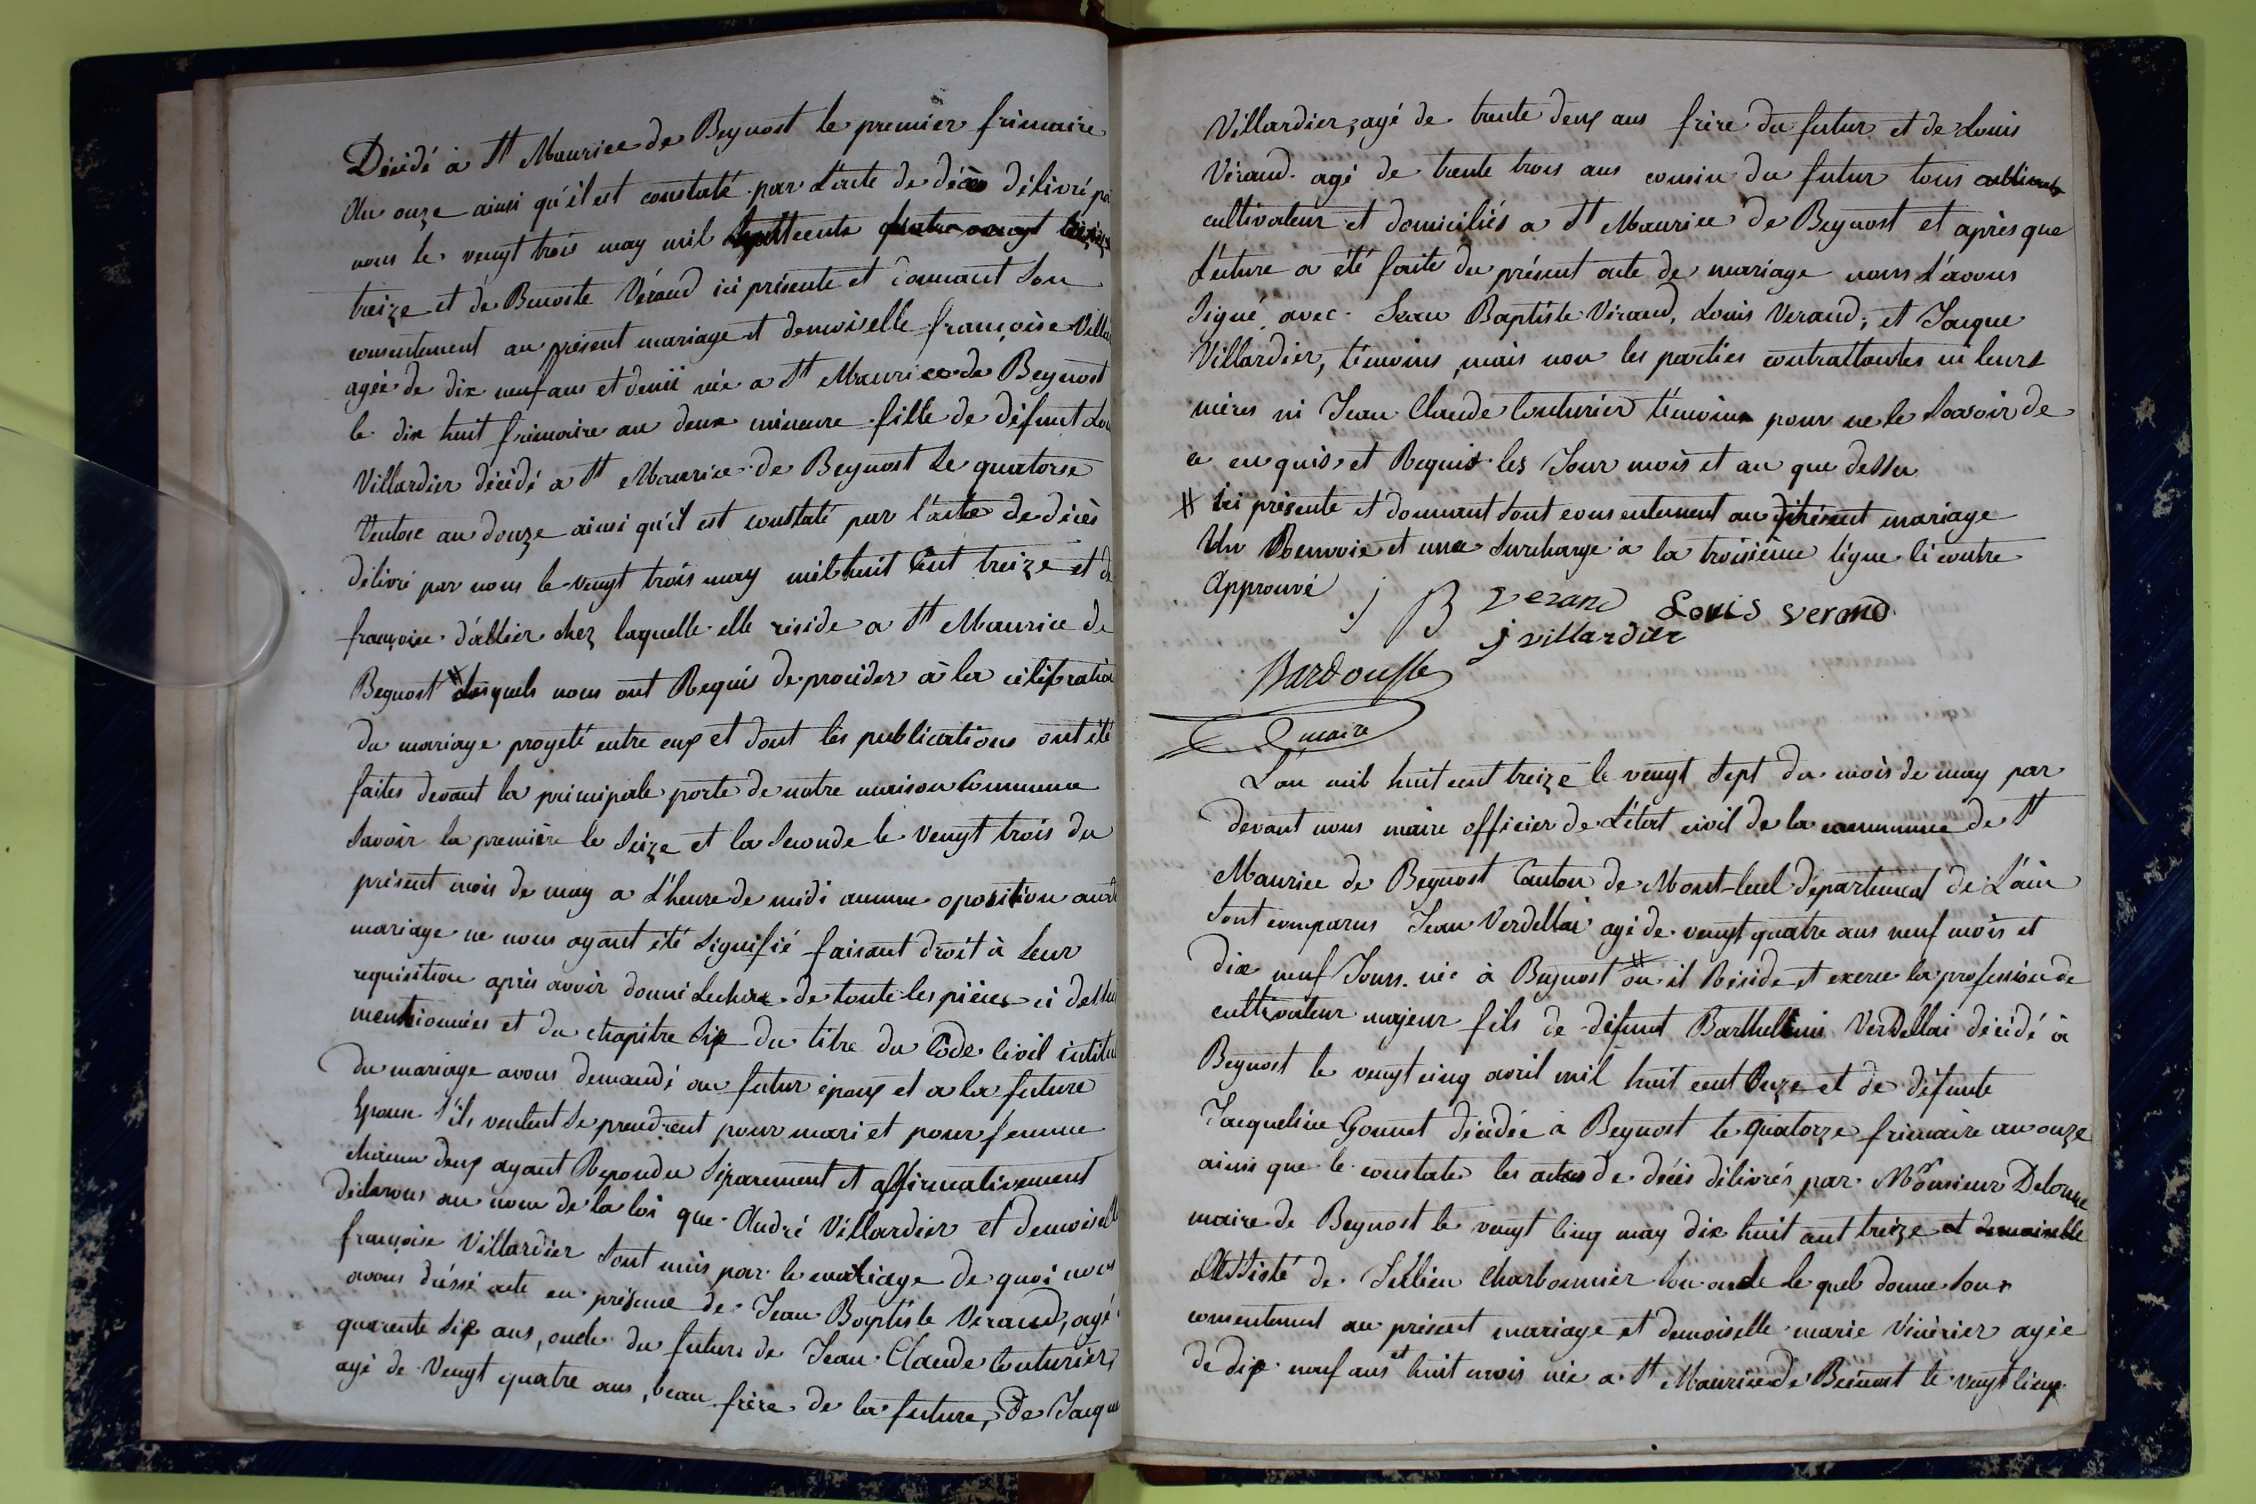 Décédé à St Maurice de Beynost le premier frimaire
An onze ainsi qu'il est constaté par L'acte de décès délivré par
nous le vengt trois may mil huit cents
treize et de Benoite Véraud ici présente et donnant Son
consentement au présent mariage et demoiselle françoise Villar
agée de dix neuf ans et demii née a St Maurice de Beynost
le dix huit frimaire an deux mineure fille de défunt Lou
Villardier décédé a St Maurice de Beynost Le quatorse
Ventose an douze ainsi qu'il est constaté par l'acte de décès
délivré par nous le vengt trois may mil huit Cent treize et de
françoise dallier chez laquelle elle réside a St Maurice de
Beynost # Lesquels nous ont Requis de procéder à la célébration
du mariage progeté entre eux et dont les publications ont été
faites devant la principale porte de notre maison Commune
Savoir la première le Seize et la Seconde le vengt trois du
présent mois de may a L'heure de midi aucune oposition audit
mariage ne nous ayant été Signifié faisant droit à leur
requisition après avoir donné Lecture de toute les pièces ci dessu
mentionnées et du chapitre Six du titre du Code Civil intitu
du mariage avons demandé au futur époux et a la future
Epouse S'ils veulent Se prendrent pour mari et pour femme
chacun deux ayant Repondu Séparement et affirmativement
déclarons au nom de la loi que André Villardier et demoiselle
françoise Villardier Sont unis par le mariage de quoi nous
avons dréssé acte en présence de Jean Baptiste Véraud, agé
quarente Six ans, oncle du futur, de Jean Claude Couturier,
agé de Vengt quatre ans, beau frère de la future, De Jacque
Villardier, agé de trente deux ans frère du futur et de Louis
Véraud agé de trente trois ans cousin du futur tous cultivat
cultivateur et domiciliés a St Maurice de Beynost et après que
Lécture a été faite du présent acte de mariage nous L'avons
Signé avec Jean Baptiste Véraud, Louis Veraud, et Jacque
Villardier, témoins, mais non les parties contrattantes ni leurs
mères ni Jean Claude Couturier témoins pour ne le Savoir de
ce enquis et Requis les Jour mois et an que dessu
# ici présente et donnant Sont consentement au présent mariage
Un Renvoie et une Surcharge a la troisième ligne ci contre
Approuvé
J B Verand Louis verand
j villardier
Bardousse
maire
L'an mil huit cent treize le vengt Sept du mois de may par
devant nous maire officier de L'état civil de la commune de St
Maurice de Beynost Canton de Mont-luel département de L'ain
Sont comparus Jean Verdellai agé de vengt quatre ans neuf mois et
dix neuf Jours né à Beynost # ou il Réside et exerce la profession de
cultivateur majeur fils de défunt Barthellmi Verdellai décédé à
Beynost le vengt cinq avril mil huit cent Onze et de défunte
Jacqueline Gonnet décédée à Beynost le quatorze frimaire an onze
ainsi que le constate les actes de décès délivrés par Monsieur Delorme
maire de Beynost le vengt Cinq may dix huit cent treize et demoiselle
Assisté de Jullien Charbonnier Son oncle le quel donne Son
consentement au présent mariage et demoiselle marie Vénérier agée
de dix neuf ans et huit mois née a St Maurice de Beinost le vengt Cinq